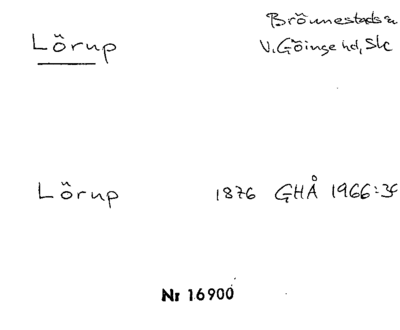 Lörup
Brönnestads sn
V. Göinge hd, Skåne
Lörup 1876 GHÅ 1966:34
Nr 16900